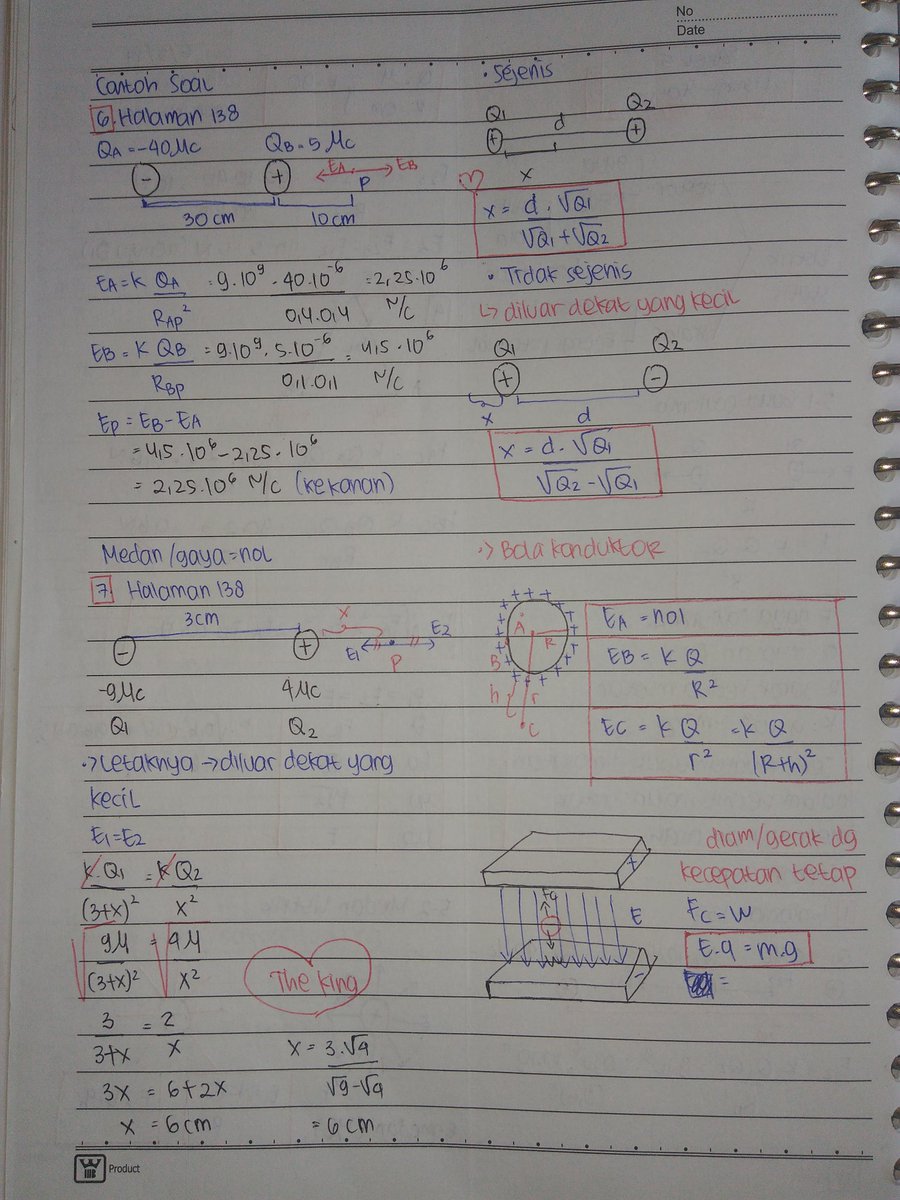 No
Date
Contoh Soal
6. Halaman 138
QA = -40 μC QB = 5 μC
- + EA EB
P
30 cm 10 cm
EA = K QA = 9.10⁹ . 40.10⁻⁶ = 2,25.10⁶
RAP² 0,4.0,4 N/C
EB = K QB = 9.10⁹. 5.10⁻⁶ = 4,5 . 10⁶
RBP 0,1.0,1 N/C
EP = EB - EA
= 4,5 .10⁶ - 2,25 . 10⁶
= 2,25.10⁶ N/C (kekanan)
Medan/gaya = nol
7 Halaman 138
3cm x
- + E1 P E2
-9 μC 4 μC
Q1 Q2
·> Letaknya → diluar dekat yang
kecil
E1 = E2
K.Q1 = K Q2
(3+x)² x²
9μ = 4μ
(3+x)² x²
The King
3 = 2
3+x x
3x = 6+2x
x = 6 cm
x = 3.√4
√9-√4
= 6 cm
• Sejenis
Q1 Q2
+ d +
x
x = d . √Q1
√Q1 + √Q2
• Tidak sejenis
↳ diluar dekat yang kecil
Q1 Q2
+ -
x d
x = d. √Q1
√Q2 - √Q1
·> Bola konduktor
+ + + + + + + + + + + + + + + + + + + +
A R
B
h r
C
EA = nol
EB = K Q
R²
EC = K Q = K Q
r² (R+h)²
diam/gerak dg
kecepatan tetap
+
E
-
Fc = W
E.q = m.g
=
Product